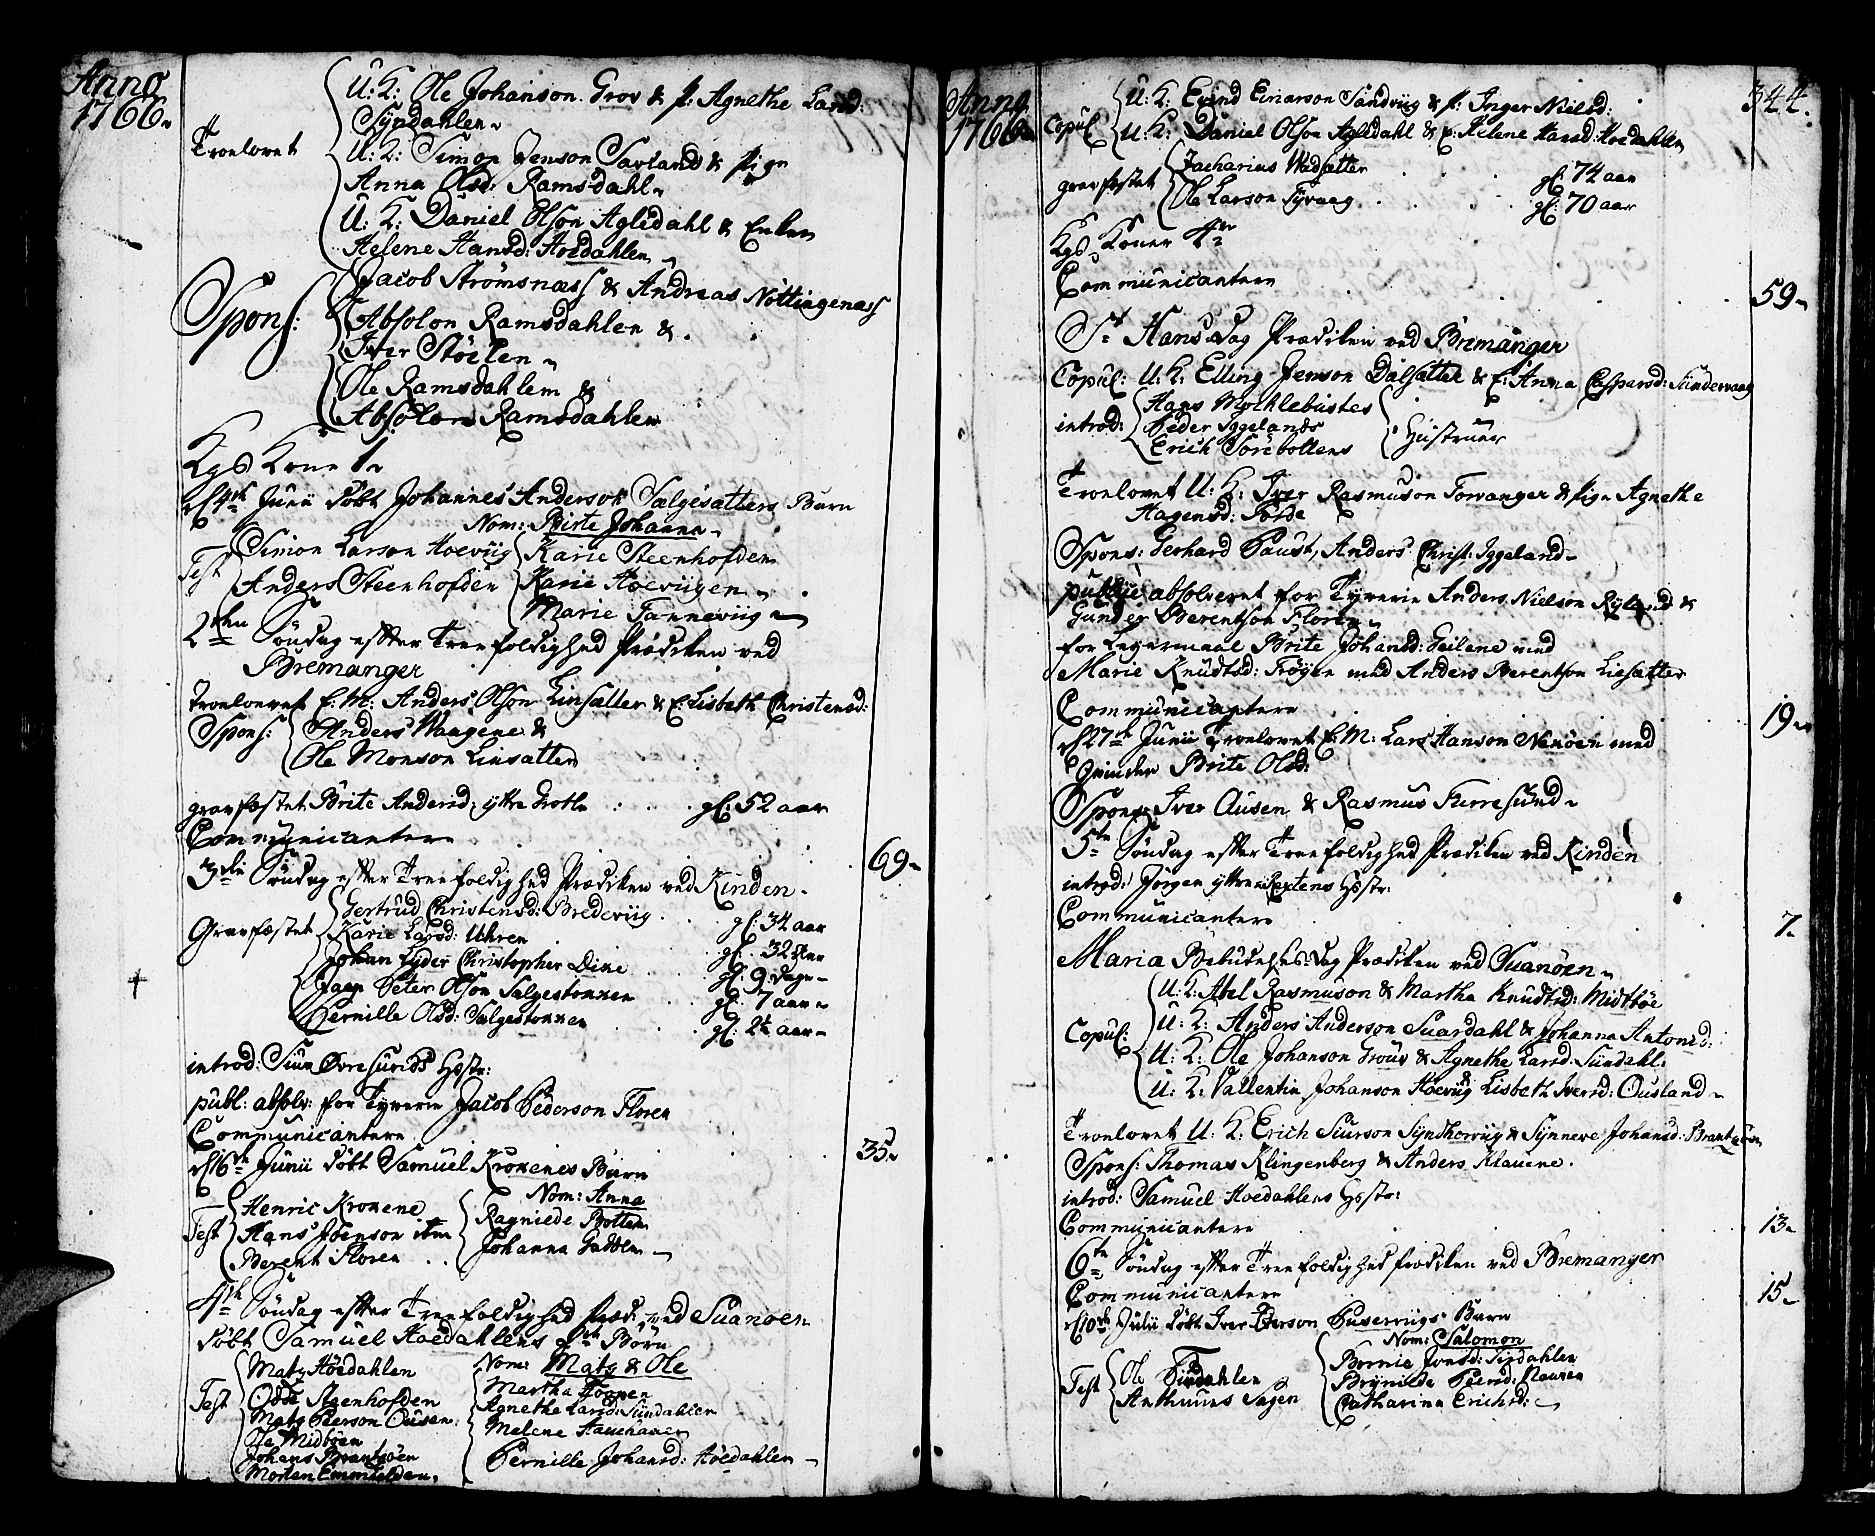 Anno
1766.
Troelovet
U: K: Ole Johanson Grov & p: Agnethe Larsd:
Syndahlen
U: K: Simon Jenson Savland & Pige
Anna Olsd: Ramsdahl
U: K: Daniel Olson Agledahl & Enken
Helene Hansd: Hoedahlen
Spons:
Jacob Strömsnæss & Andreas Nottingenæss
Absolon Ramsdahlen &
Iver Stöelen
Ole Ramsdahlen &
Absolon Ramsdahlen
Kgs Kone 1
d 4de Junii döbt Johannes Anderson Sælgesætters Barn
Nom: Birte Johanna
Test
Simon Larson Hoeviig
Anders Steenhofden
Karie Steenhofden
Karie Hoeviigen
Marie Tanneviig
2den Söndag effter Treefoldighed Prædiken ved
Bremanger
Troelovet E: M: Anders Olson Linsætter & E: Lisbeth Christensd:
Spons:
Anders Waagene &
Ole Monson Linsætter
gravfæstet Brite Andersd: yttre Grotle gl: 52 aar
Communicantere
69
3die Söndag effter Treefoldighed Prædiken ved Kinden
Gravfæstet
Gertrud Christensd: Bredeviig gl: 34 aar
Karie Larsd: Uhren gl: 32 aar
Johan Lyder Christopher Dine gl: 9 dage
Peter Olson Sælgestokken gl: 7 aar
Pernille Olsd: Sælgestokken gl: 2½ aar
introd: Siur Övresunds Hstr:
publ: absolv: for Tyverie Jacob Pederson Floren
Communicantere
35
d 16de Junii döbt Samuel Krokenes Barn
Nom: Anna
Test
Henric Krokene
Hans Joenson ibm
Berent Floren
Ragniede Botten
Johanna Gadden
4de Söndag effter Treefoldighed Præd: ved Svanöen
döbt Samuel Hoedahlens 2de Börn
Nom: Mats & Ole
Test
Mats Höedahlen
Odde Steenhofden
Mats Peerson Ousen
Ole Midböen
Johans Brantzöen
Morten Emmhelden
Martha Toppen
Agnethe Larsd: Sündahlen
Malene Stauehauen
Pernille Johansd: Höedahlen
Anno
1766
344.
Copul:
U: K: Evind Einarson Sandviig & p: Inger Nielsd:
U: K: Daniel Olson Agledahl & E: Helene Hansd: Hoedahlen
gravfæstet
Zacharias Wedsætter gl: 74 aar
Ole Larson Tyvaag gl: 70 aar
Kgs Koner 4re
Communicantere
59
St Hansdag Prædiken ved Bremanger
Copul: U: K: Elling Jenson Dalsætter & E: Anna Caspersd: Sündervaag
introd:
Hans Mochlebustes
Peder Iggelands
Erich Toreboltens
Hustruer
Troelovet U: K: Iver Rasmuson Torvanger & Pige Agnethe
Hagensd: Förde
Spons: Gerhard Faust, Anders Christ: Iggeland
publice absolveret for Tyverie Anders Nielson Ryland &
Gunder Berentson Floren
for Lejermaal Brite Johansd: Geilene med
Marie Knudtsd: Fröyen med Anders Berentson Liesætter
Communicantere
19
d 27de Junii Troelovet E: M: Lars Hanson Nekøen med
Qvinden Brite Olsd:
Spons: Iver Ausen & Rasmus Furresund
5te Söndag effter Treefoldighed Prædiken ved Kinden
introd: Jörgen yttre Rextens Hstr:
Communicantere
7
Maria Bebudelses dag Prædiken ved Svanöen
Copul:
U: K: Abel Rasmuson & Martha Knudtsd: Midtböe
U: K: Anders Anderson Svardahl & Johanna Antonsd:
U: K: Ole Johanson Grouv & Agnethe Larsd: Sündahl
U: K: Vallentin Johanson Hoeviig & Lisbeth Iversd: Ousland
Troelovet U: K: Erich Siurson Syndhoviig & Synneve Johansd: Brantzöen
Spons: Thomas Klingenberg & Anders Klauene.
introd: Samuel Hoedahlens Hstr:
Communicantere
13
6te Söndag effter Treefoldighed Prædiken ved Bremanger
Communicantere
15
d 10de Julii döbt Iver Peerson Huseviigs Barn
Nom: Salomon
Test
Ole Sindahlen
Anthunes Sagen
Bernie Jonsd: Sindahlen
Brynilde Peersd: Naveen
Catharina Erichsd: